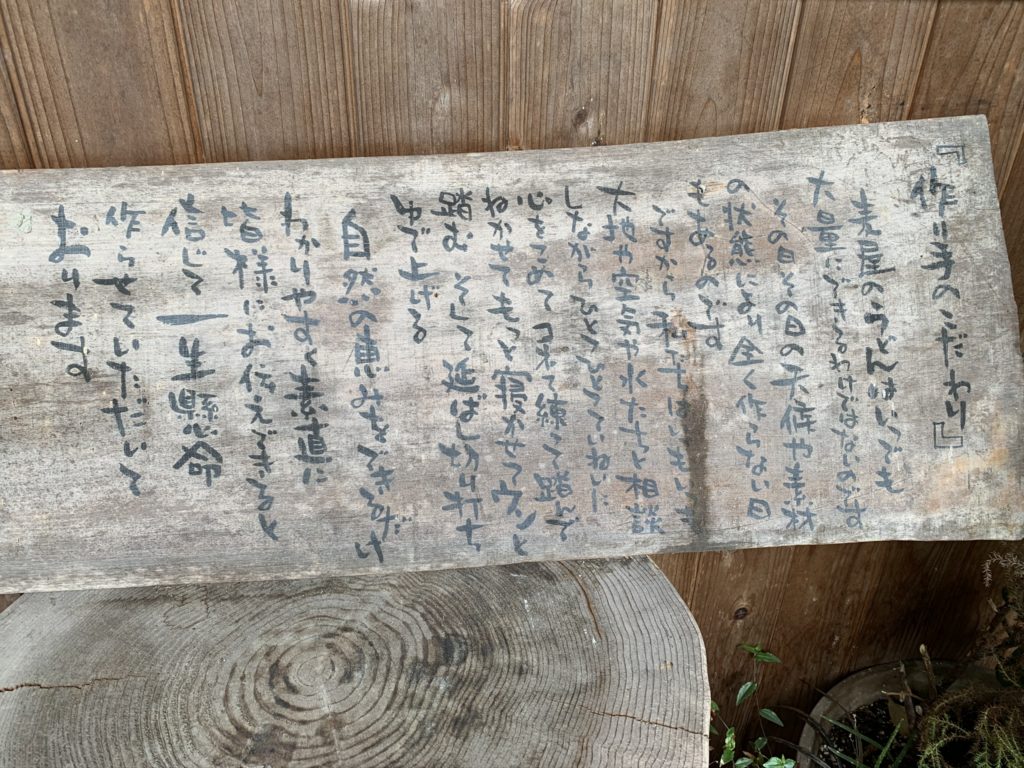 『作り手のこだわり』
麦屋のうどんはいつでも
大量にできるわけではないのです
その日その日の天候や素材
の状態により全く作らない日
もあるのです
ですから私たちはいつもいつも
大地や空気や水たちと相談
しながらひとつひとつていねいに
心をこめてコネて練って踏んで
ねかせてもっと寝かせてウンと
踏む そして延ばし切り打ち
ゆで上げる
自然の恵みをできるだけ
わかりやすく素直に
皆様にお伝えできると
信じて一生懸命
作らせていただいて
おります